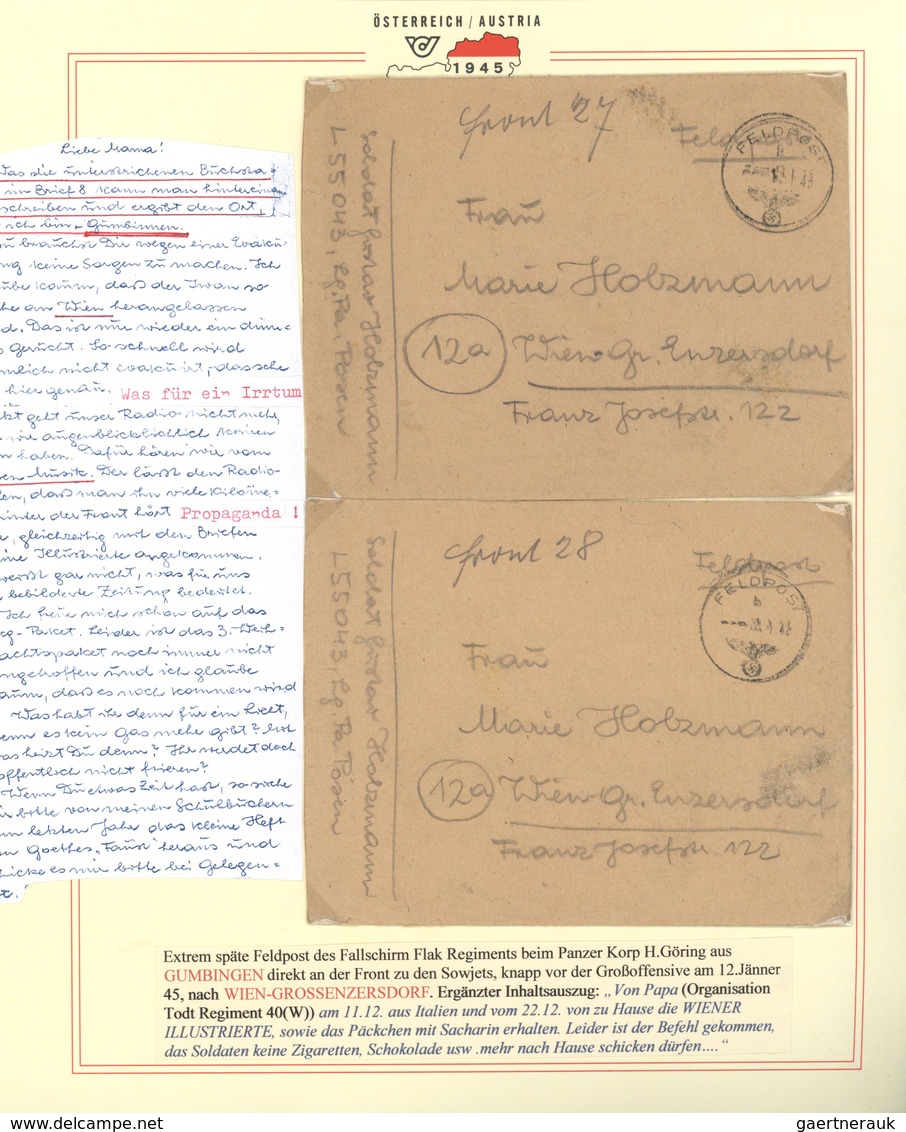 ÖSTERREICH / AUSTRIA
1945
Liebe Mama!
Was die unterstrichenen Buchsta
im Brief 8 kann man hintereinan
schreiben und ergibt den Ort,
ich bin - Gumbinnen.
brauchst Du wegen einer Evaku=
ng keine Sorgen zu machen. Ich
ube kaum, daß der Iwan so
he an Wien herangelassen
d. Das ist nur wieder ein dum=
s Gerücht. So schnell wird
mlich nicht evakuiert, das sehe
hier genau. Was für ein Irrtum
tzt geht unser Radio nicht mehr,
wir augenblicklich keinen
n haben. Dafür hören wir vom
en Musik. Der läßt den Radio
en, daß man ihn viele Kilome=
hinter der Front hört Propaganda !
e, gleichzeitig mit den Briefen
ine Illustrierte angekommen.
weißt gar nicht, was für uns
bebilderte Zeitung bedeutet.
Ich freue mich schon auf das
cg-Paket. Leider ist das 3. Weih=
achtspaket noch immer nicht
ngetroffen und ich glaube
aum, daß es noch kommen wird
Was habt ihr denn für ein Licht,
enn es kein Gas mehr gibt? Mit
as heizt Du denn? Ihr werdet doch
offentlich nicht frieren?
Wenn Du etwas Zeit hast, so suche
bitte von meinen Schulbüchern
m letzten Jahr das kleine Heft
n Goethes „Faust" heraus und
hicke es mir bitte bei Gelegen=
t.
front 27
Feldpost
FELDPOST
b
Frau
Marie Holzmann
12a Wien-Gr. Enzersdorf
Franz Josefstr. 122
Soldat Gustav Holzmann
L 55043, Lg. Pa. Posen
front 28
Feldpost
FELDPOST
b
Frau
Marie Holzmann
12a Wien-Gr. Enzersdorf
Franz Josefstr. 122
Soldat Gustav Holzmann
L 55043, Lg. Pa. Posen
Extrem späte Feldpost des Fallschirm Flak Regiments beim Panzer Korp H.Göring aus
GUMBINGEN direkt an der Front zu den Sowjets, knapp vor der Großoffensive am 12.Jänner
45, nach WIEN-GROSSENZERSDORF. Ergänzter Inhaltsauszug: „Von Papa (Organisation
Todt Regiment 40(W)) am 11.12. aus Italien und vom 22.12. von zu Hause die WIENER
ILLUSTRIERTE, sowie das Päckchen mit Sacharin erhalten. Leider ist der Befehl gekommen,
das Soldaten keine Zigaretten, Schokolade usw .mehr nach Hause schicken dürfen….“
www.delcampe.net
gaertnerauk